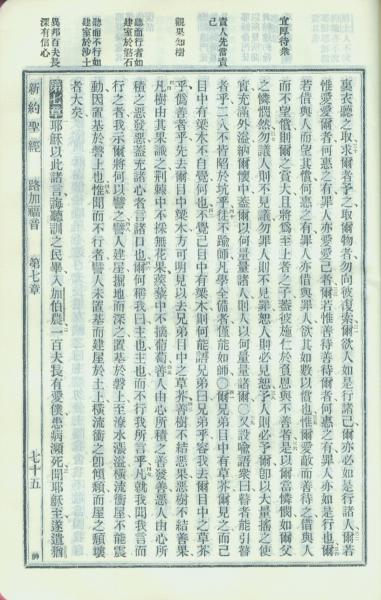 宜厚待衆
責人先當責
己
觀果知樹
聽而行者如
建室於磐石
聽而不行如
建室於沙土
異邦百夫長
深有信心
裏衣聽之取求爾者予之取爾物者勿向彼復索爾欲人如是行諸己爾亦必如是行諸人爾若
惟愛愛爾者何惪之有罪人亦愛愛己者爾若惟善待善待爾者何惪之有罪人亦如是行也爾
若借與人而望其償何惪之有罪人亦借與罪人欲其如數以償也惟爾愛敵而善待之借與人
而不望償則爾之賞大且將爲至上者之子蓋彼施仁於負恩與不善者是以爾當憐憫如爾父
之憐憫然勿議人則不見議勿罪人則不見罪恕人則必見恕予人則必予爾卽以大量搖之使
實充滿外溢置爾懷中蓋爾以何量量諸人則人以何量量諸爾○又設喻語衆曰瞽者能引瞽
者乎二人不皆陷於坑乎徒不踰師凡學全備者僅能如師○爾兄弟目中有草芥爾見之而己
目中有梁木不自覺何也不覺己目中有梁木則何能語兄弟曰兄弟乎容我去爾目中之草芥
乎僞善者乎先去爾目中梁木方可明見以去兄弟目中之草芥善樹不結惡果惡樹不結善果
凡樹由其果識之荆棘中不採無花果蒺藜中不摘葡萄善人由心所積之善發善惡人由心所
積之惡發惡蓋充諸心者言諸口也爾何稱我曰主也主也而不行我所言乎凡就我聞我言而
行之者我示爾將何以譬之譬人建屋掘地而深之置基於磐上至潦水漲溢橫流衝屋不能震
動因置基於磐上也惟聞而不行者譬人未置基而建屋於土上橫流衝之卽傾頹而屋之頹壞
者大矣
第七章 耶穌以此諸言誨聽訓之民畢入加伯農一百夫長有愛僕患病瀕死聞耶穌至遂遣猶
新約聖經 路加福音 第七章 七十五